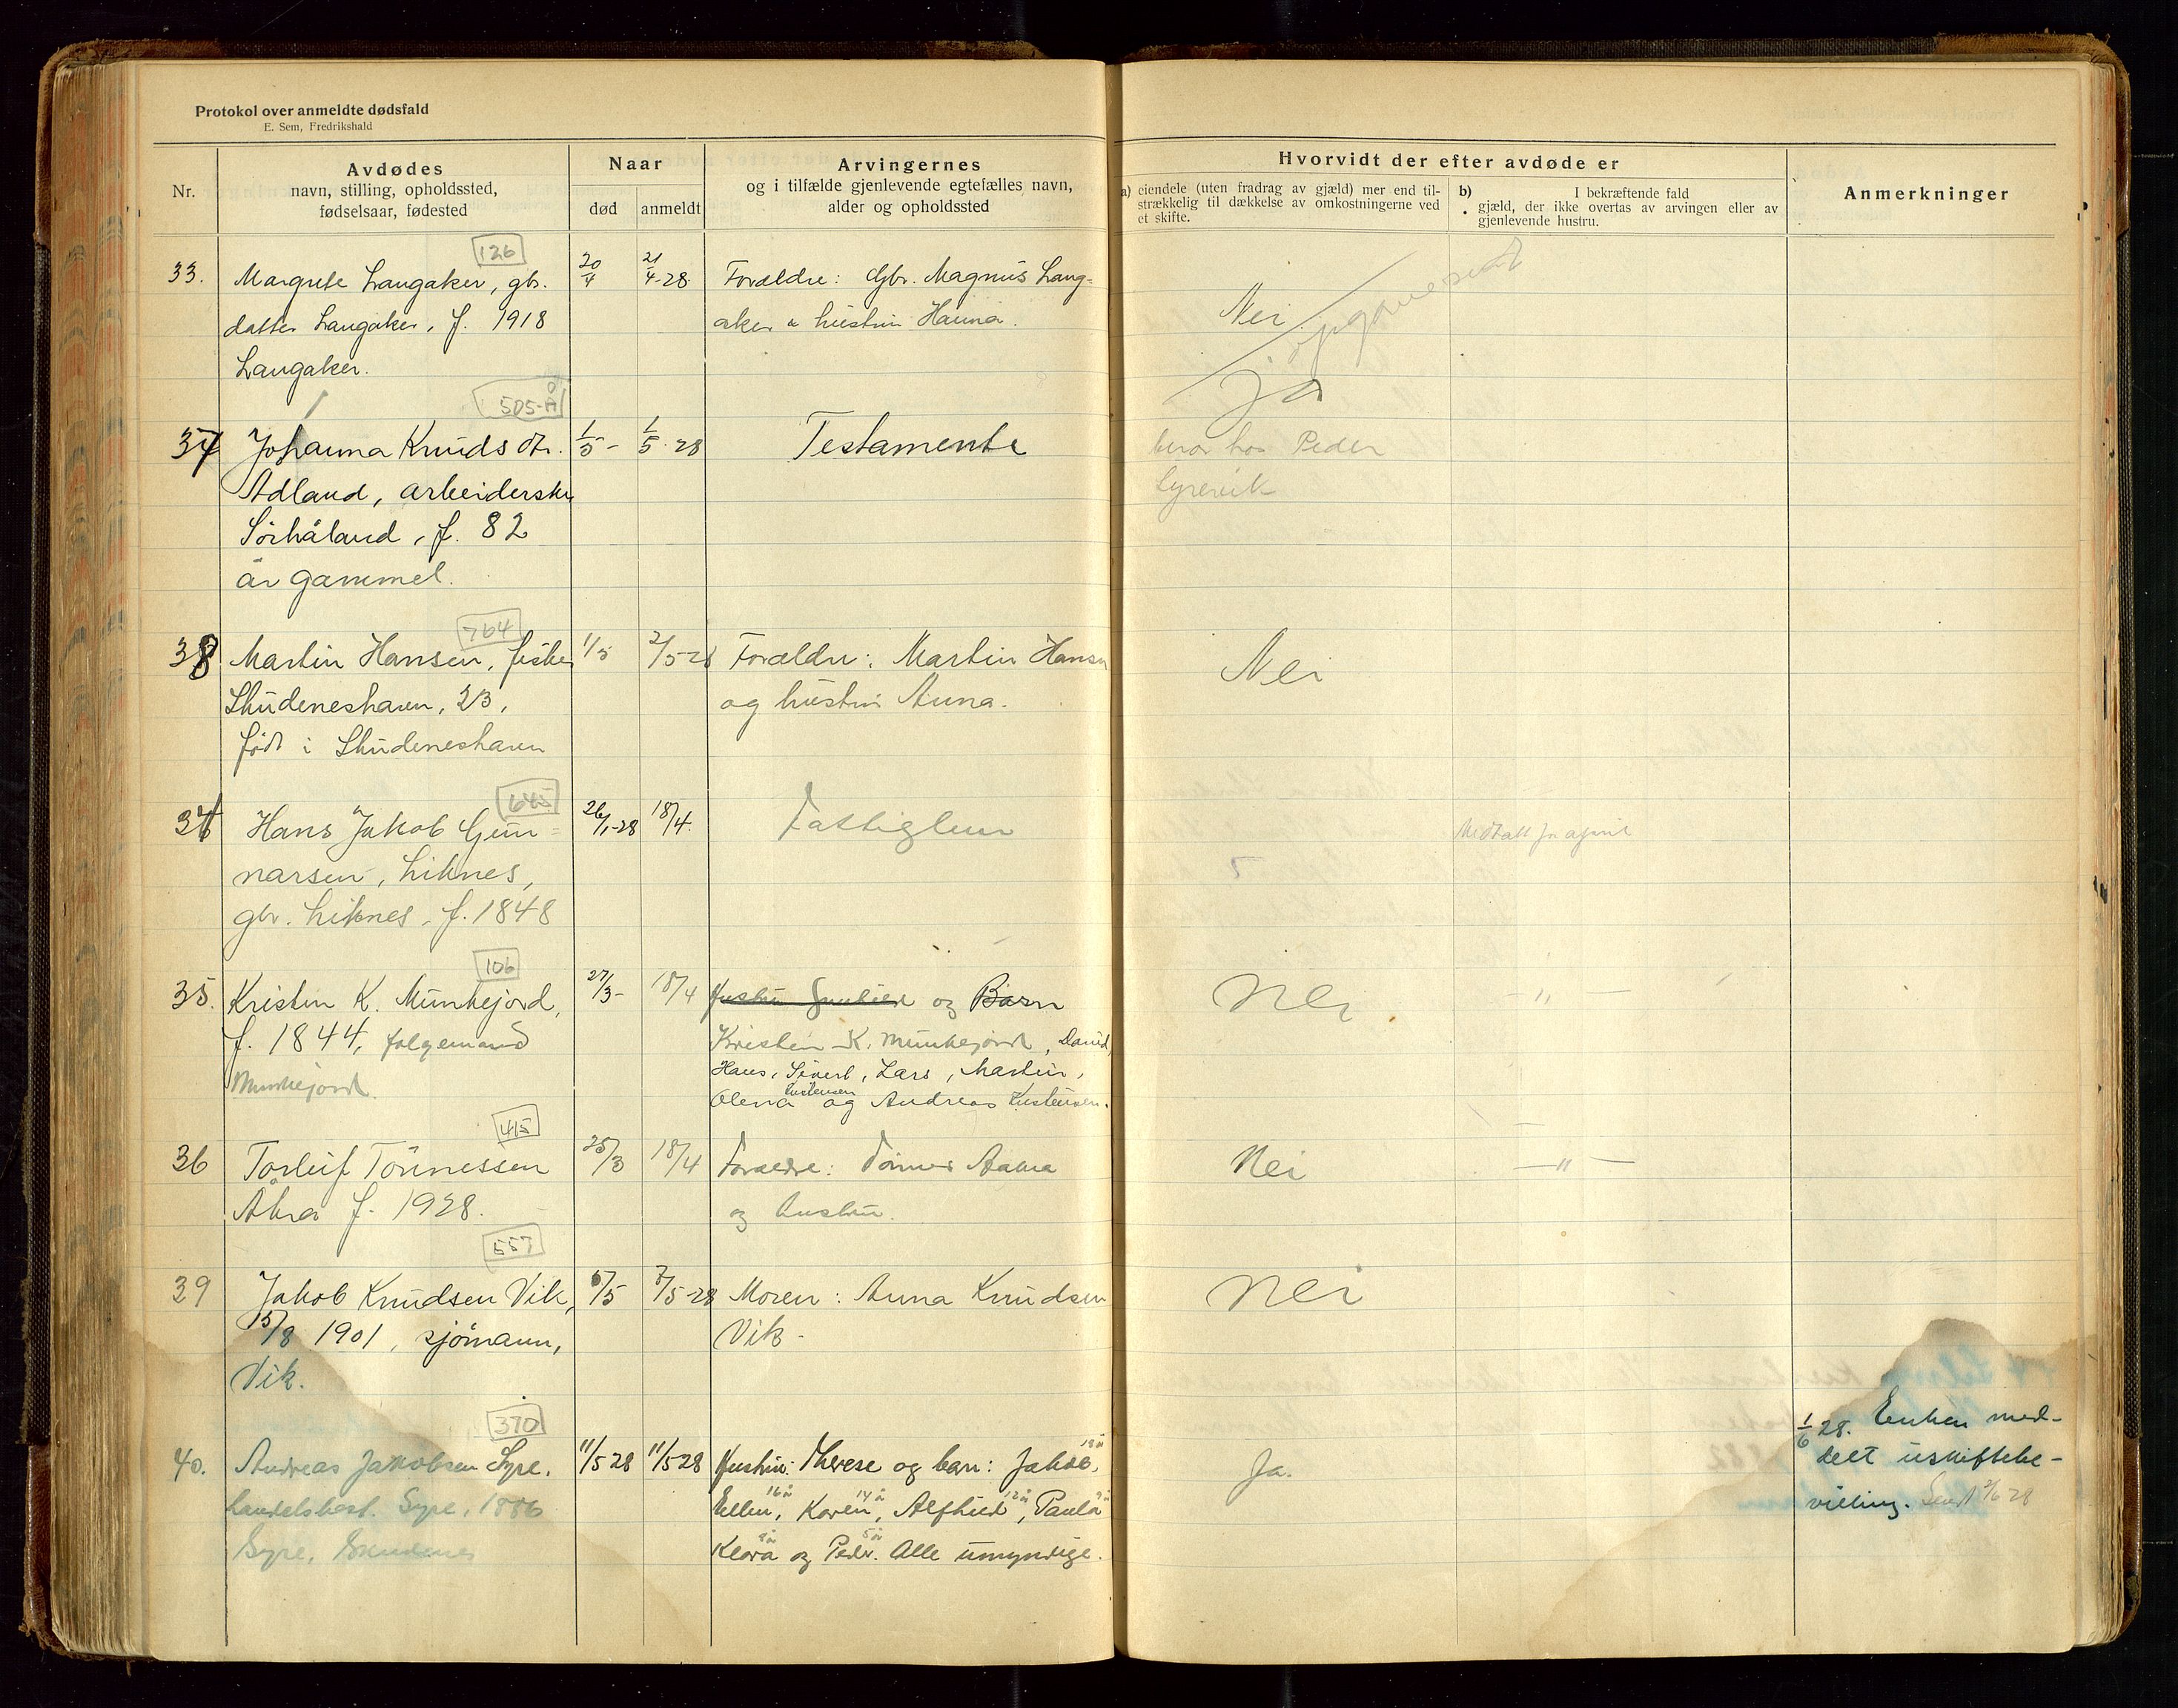 Protokol over anmeldte dødsfald
E. Sem, Fredrikshald
Nr.
Avdødes
navn, stilling, opholdssted,
fødselsaar, fødested
Naar
død
anmeldt
Arvingernes
og i tilfælde gjenlevende egtefælles navn,
alder og opholdssted
Hvorvidt der efter avdøde er
a) eiendele (uten fradrag av gjæld) mer end til-
strækkelig til dækkelse av omkostningerne ved
et skifte.
b) I bekræftende fald
gjæld, der ikke overtas av arvingen eller av
gjenlevende hustru.
Anmerkninger
126
33. Margrete Langaker, gbr. 20/4 21/4-28. Forældre: Gbr. Magnus Lang-
datter Langaker, f. 1918 aker & hustru Hanna. Nei
Langaker.
505-Å
Ja
37 Johanna Knudsdtr. 1/5- 1/5-28 Testamente beror hos Peder
Adland, arbeiderske Syrevik
Sörhåland, f. 82
år gammel.
764
38 Martin Hansen, fisker 1/5 2/5-28 Forældre: Martin Hansen Nei
Skudeneshavn, 23, og hustru Anna.
född i Skudeneshavn
645
34 Hans Jakob Gun- 26/1-28 18/4. Fattiglem
narsen, Liknes,
gbr. Liknes, f. 1848
106
35. Kristen K. Munkejord, 27/3- 18/4 hustru og Barn Nei -"-
f. 1844, folgemand Kristen K. Munkejord, David,
Munkejord. Hans, Sivert, Lars, Martin,
Kristensen
Olena og Andreas Kristensen.
415
36 Torleif Tönnessen 25/3 18/4 Forældre: Tönnes Aakra Nei -"-
Åkra f. 1928. og hustru.
557
39 Jakob Knudsen Vik, 6/5 7/5-28 Moren: Anna Knudsen Nei
15/8 1901, sjömann, Vik-
Vik.
370
40. Andreas Jakobsen Syre, 11/5 28 11/5 28 Hustru: Therese og barn: Jakob, Ja. 1/6 28. Enken med-
handelsbest. Syre, 1886 16 år 14 år 12 år delt uskiftebe-
Ellen, Karen, Alfhild, Paula villing. Sendt 2/6 28
Syre, Skudenes 5 år
Klara og Peder. Alle umyndige.